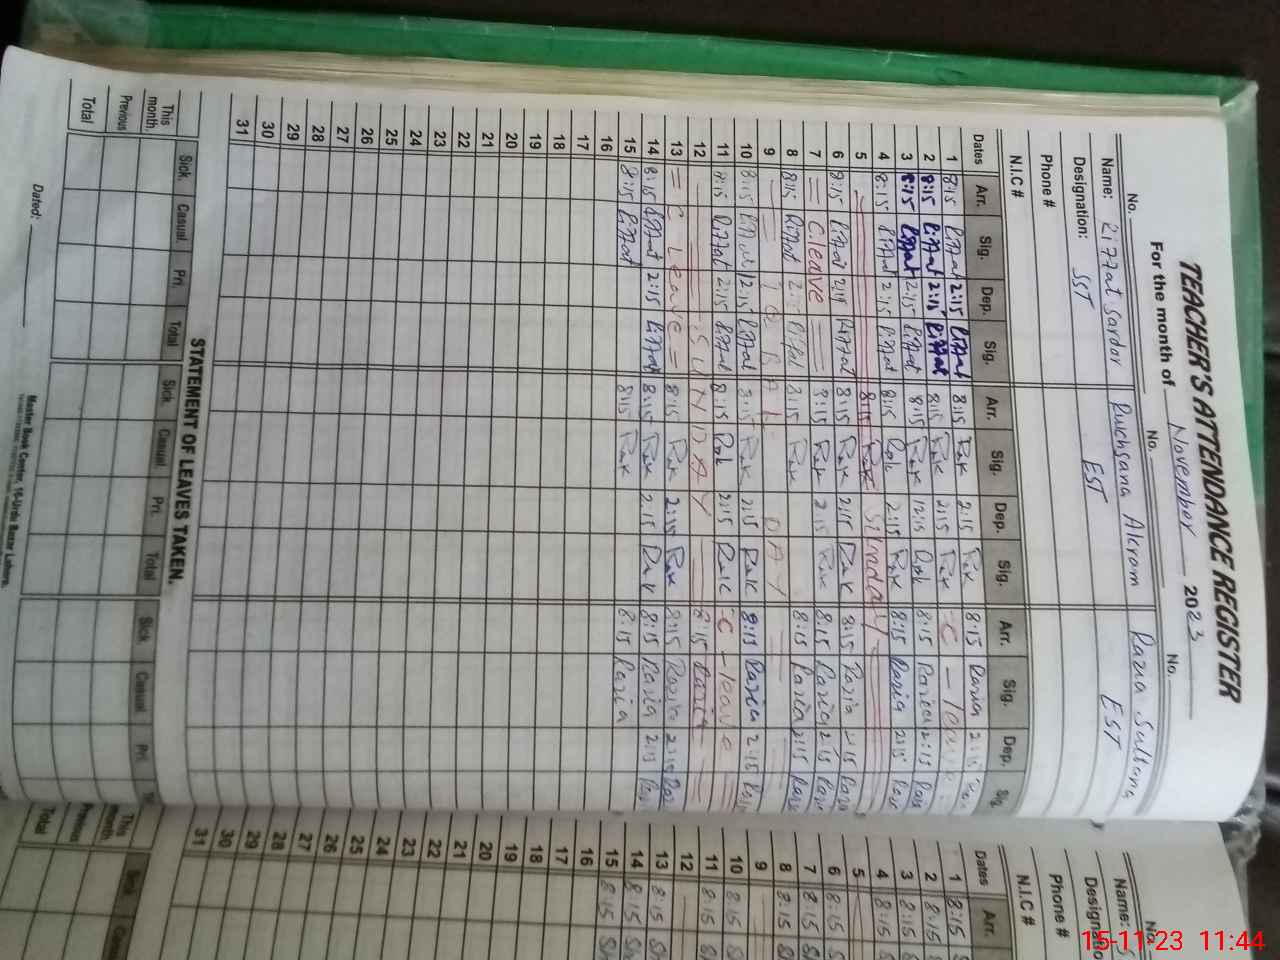 TEACHER'S ATTENDANCE REGISTER
For the month of November 2023
No. No. No.
Name: Riffat Sardar Rukhsana Akram Razia Sultana
Designation: SST EST EST
Phone #
N.I.C #
Dates Arr. Sig. Dep. Sig. Arr. Sig. Dep. Sig. Arr. Sig. Dep. Sig.
1 8:15 Riffat 2:15 Riffat 8:15 Rak 2:15 Rak 8:15 Razia
2 8:15 Riffat 2:15 Riffat 8:15 Rak 2:15 Rak - C -
3 8:15 Riffat 2:15 Riffat 8:15 Rak 12:15 Rak 8:15 Razia 2:15
4 8:15 Riffat 2:15 Riffat 8:15 Rak 2:15 Rak 8:15 Razia 2:15
5 8:15 Rak Sunday
6 8:15 Riffat 2:15 Riffat 8:15 Rak 2:15 Rak 8:15 Razia 2:15
7 = C leave = 8:15 Rak 2:15 Rak 8:15 Razia 2:15
8 8:15 Riffat 8:15 Rak 8:15 Razia 2:15
9 DAY
10 8:15 2:15 Riffat 8:15 Rak 2:15 Rak 8:15 Razia 2:15
11 8:15 Riffat 2:15 Riffat 8:15 Rak 2:15 Rak - C - leave
12 SUNDAY 8:15 Razia
13 = C Leave = 8:15 Rak 2:15 Rak 8:15 Razia 2:15
14 8:15 Riffat 2:15 Riffat 8:15 Rak 2:15 Rak 8:15 Razia 2:15
15 8:15 Riffat 8:15 Rak 8:15 Razia
16
17
18
19
20
21
22
23
24
25
26
27
28
29
30
31
STATEMENT OF LEAVES TAKEN.
Sick. Casual. Pri. Total Sick. Casual. Pri. Total Sick. Casual. Pri.
This month.
Previous
Total
Dated:
Master Book Center, 16-Urdu Bazar Lahore.
No.
Name:
Phone #
N.I.C #
Dates Arr.
1 8:15
2 8:15
3 8:15
4 8:15
5
6 8:15
7 8:15
8 8:15
9
10 8:15
11 8:15
12
13 8:15
14 8:15
15 8:15
16
17
18
19
20
21
22
23
24
25
26
27
28
29
30
31
This month.
Previous
Total
15-11-23 11:44